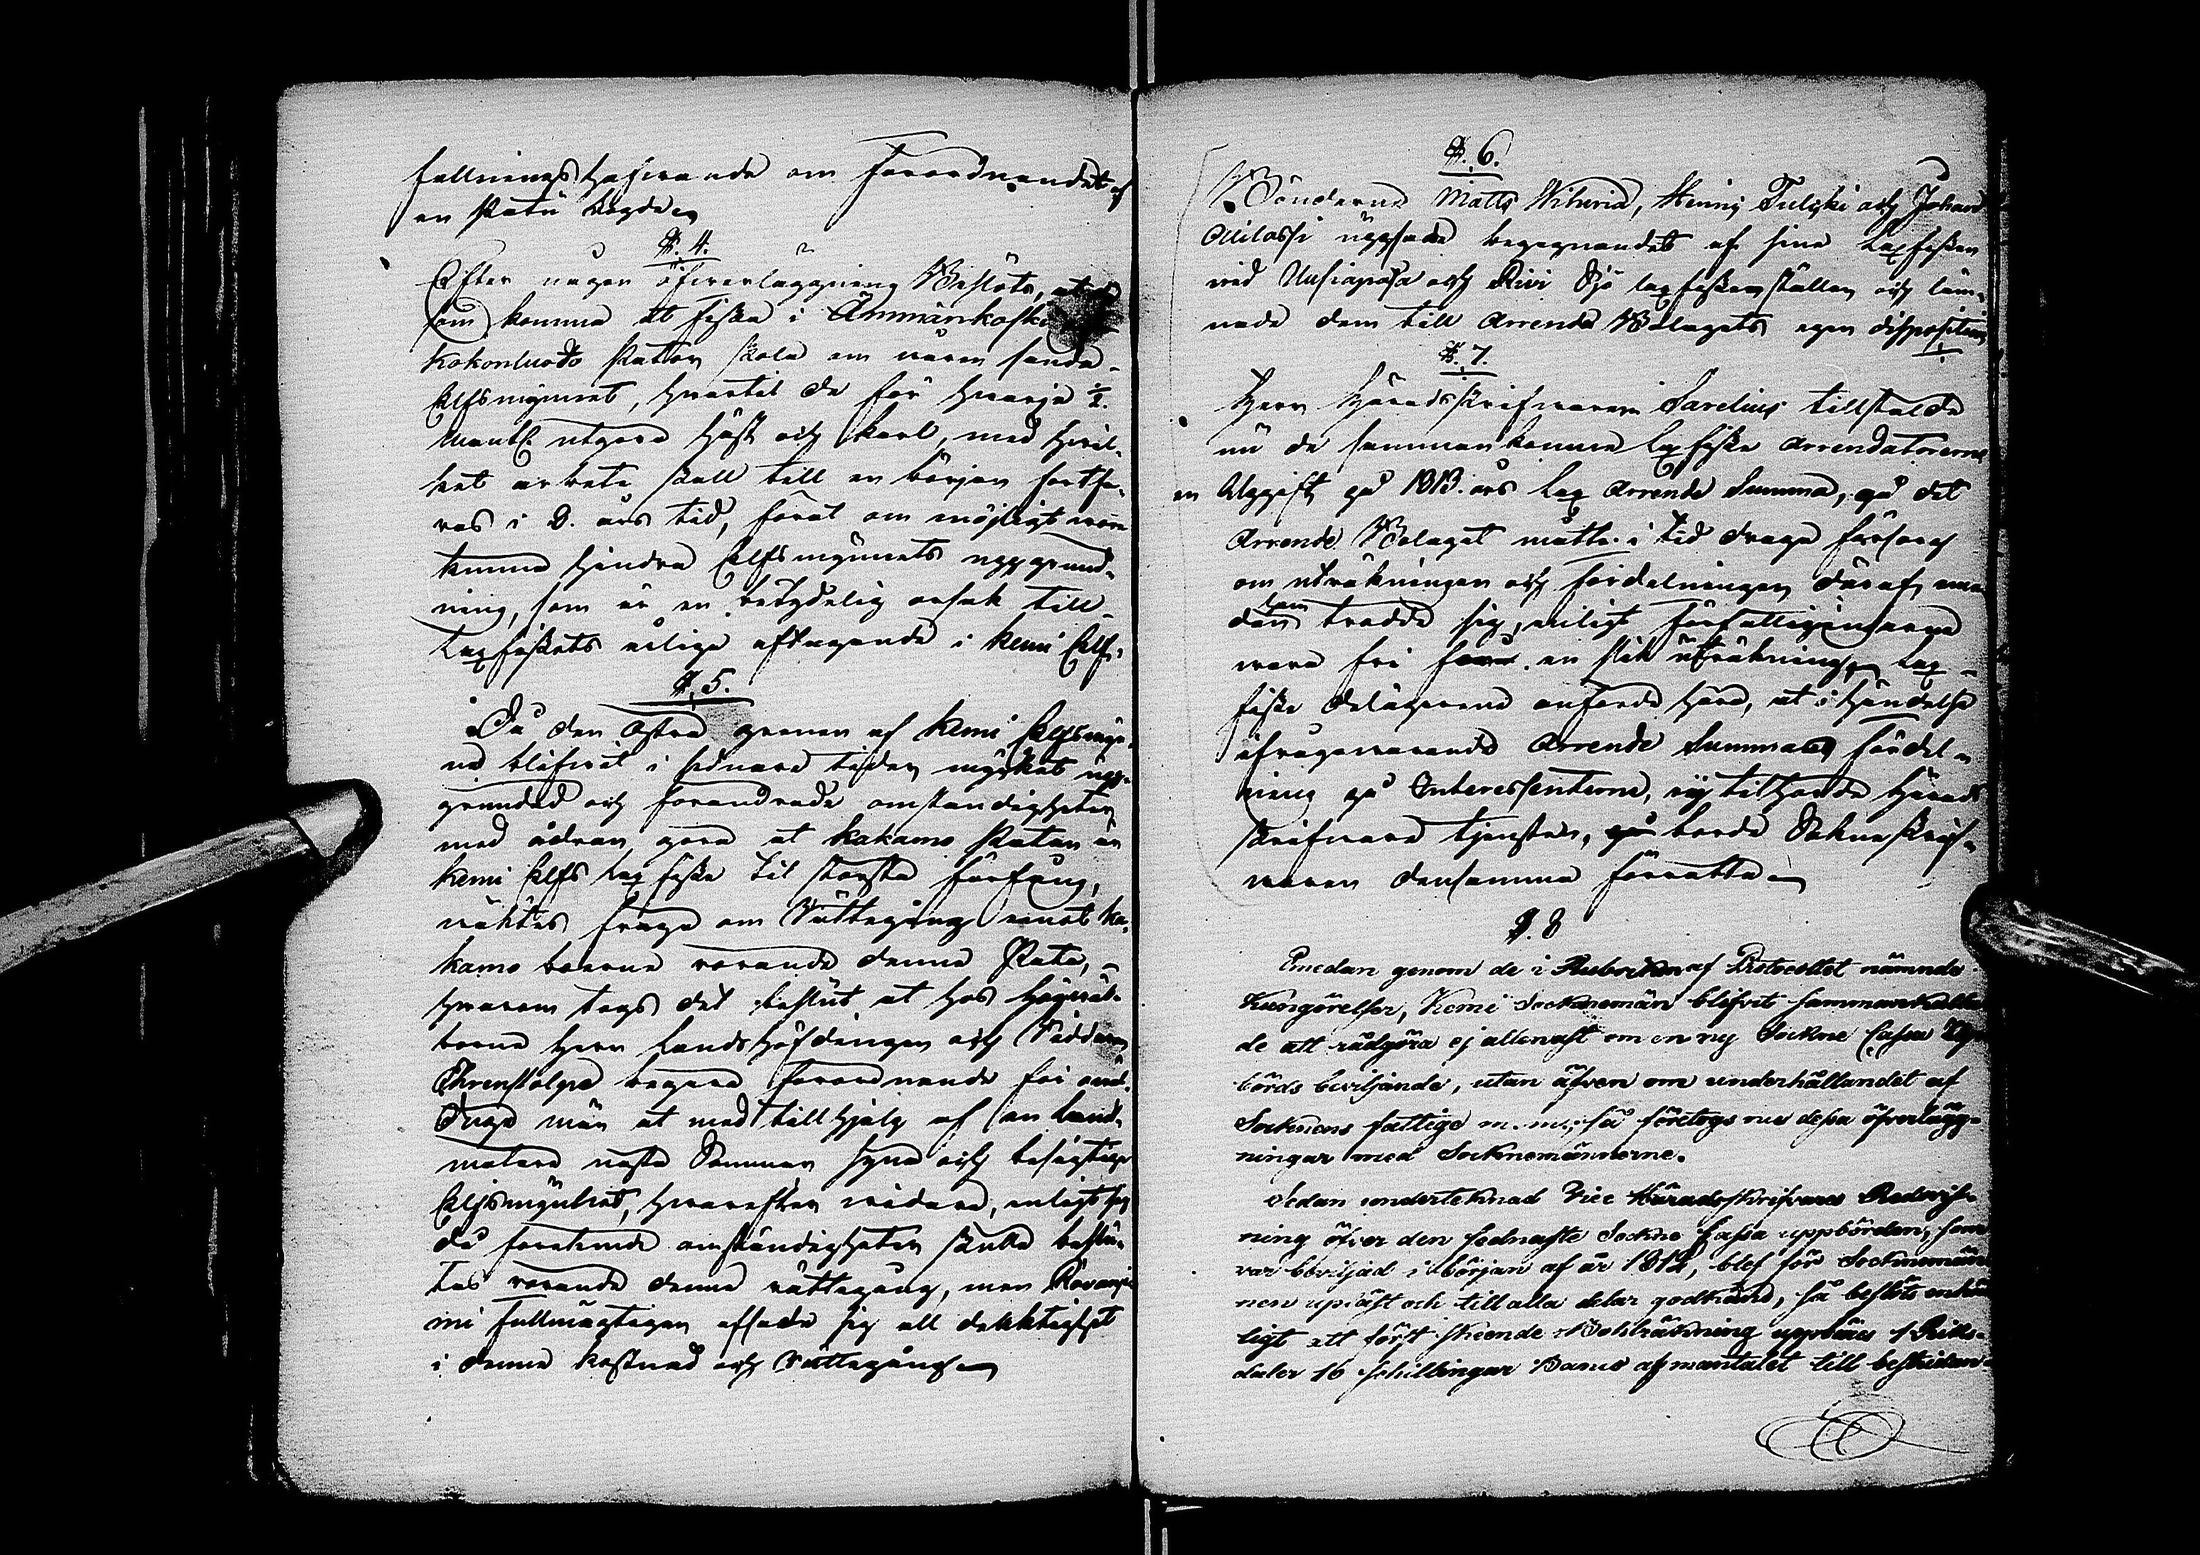 fallningshafvande om Förordnandet af
en Patu Fogde
§. 4.
Efter någon öfverläggning Beslöts, at de
som komma at fiska i Ämmänkoski
Kokonluodo Patan skola om våren sanda
Elfsmynnet, hvartil de för hvarje ½.
Mantl utgöra häst och karl, med hvil-
ket arbete skall till en början fortfa-
ras i 2. års tid, föråt om möjligt vore
kunna hindra Elfsmynnets uppgrund-
ning, som är en betydelig orsak till
Laxfiskets årliga aftagande i Kemi Elf.
§. 5.
Då den Östra grenen af Kemi Elfsmyn-
ne blifvit i sednare tider mycket upp-
grundad och förandrade omständigheter
med ådran, göra at Kakamo Patan är
Kemi Elfs Laxfiske til största förfång,
väktes fråga om Rättegång emot Ka-
kamo boerne rörande denna Pata,
hvarom togs det beslut at hos Högväl-
borne Herr Landshöfdingen och Riddaren
Ehrenstolpe begära förordnande för
män at med tillhjelp af en Landt-
mätare nästa Sommar syna och besigtiga
Elfsmynnet, hvarefter vidare, enligt
då förekomne omständigheter skulle beslu-
tas rörande denna rättegång, men Rovanie
mi fullmägtigen afsade sig all delaktighet
i denna kostnad och Rättegång
§. 6.
Bönderne Matts Wiluna, Henric Tulski och Johan
Ollilassi uppsade begagnandet af sina Laxfisken
vid Uusiapata och Kivi Sjö laxfiskenställen och läm-
nade dem till Arrende Bolagets egen disposition
§. 7.
Herr Häradsskrifvaren Sarelius tillstälde
nu de sammankomne Laxfiske Arrendatorerne
en Uppgift på 1813. års Lax Arrende Summa, på det
Arrende Bolaget måtte i tid draga försorg
om uträkningen och fördelningen däraf, eme-
dan han trodde sig, enligt författningarne
vara fri från en slik uträkning, Lax-
fiske delägarene anförde häre, at i händelse
ifrågavarande Arrende Summas fördel-
ning på Interessenterne, ej tilhörde Härads
skrifvare tjensten, borde Sokneskrif-
varen densamma förrätta
§. 8
Emedan genom de i Rubriken af Protocollet nämnde
Kungörelser, Kemi Socknemän blifvit sammankalla-
de att rådgöra ej allenast om en ny Sockne Cassa Upp-
börds beviljande, utan äfven om underhållandet af
Socknens fattige m. m., så företogs nu dessa öfverlägg-
ningar med Socknemännerne.
Sedan undertecknad Vice Häradsskrifvares Redovis-
ning öfver den sednaste Sockne Cassa uppbörden, som
var beviljad i början af år 1812, blef för Socknemän-
nen upläst och till alla delar godkänd, så beslöts enhäl-
ligt att först skeende Bohlräkning uppbäres 1 Riks-
daler 16 schillingar Banco af mantalet till bestridan-